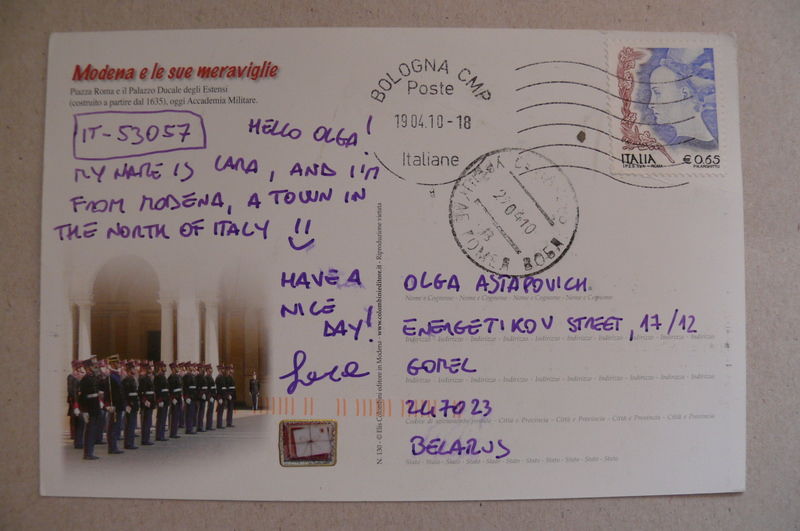 Modena e le sue meraviglie
Piazza Roma e il Palazzo Ducale degli Estensi
(costruito a partire dal 1635), oggi Accademia Militare.
IT-53057
HELLO OLGA!
MY NAME IS LARA, AND I'M
FROM MODENA, A TOWN IN
THE NORTH OF ITALY !!
HAVE A
NICE
DAY!
Lara
N. 130 - © Elis Colombini editore in Modena - www.colombinieditore.it - Riproduzione vietata
BOLOGNA CMP
Poste
19.04.10-18
Italiane
ITALIA
€ 0,65
I.P.Z.S. S.p.A. - ROMA
OLGA ASTAPOVICH
Nome e Cognome - Nome e Cognome - Nome e Cognome - Nome e Cognome
ENERGETIKOV STREET, 17/12
Indirizzo - Indirizzo - Indirizzo - Indirizzo - Indirizzo - Indirizzo - Indirizzo
GOMEL
Indirizzo - Indirizzo - Indirizzo - Indirizzo - Indirizzo - Indirizzo - Indirizzo
247023
Città e Provincia - Città e Provincia - Città e Provincia
BELARUS
Stato - Stato - Stato - Stato - Stato - Stato - Stato - Stato - Stato - Stato